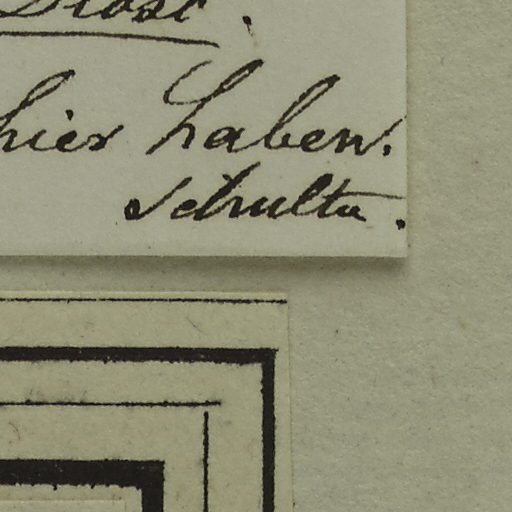 Probst.
hier haben.
Schultz.